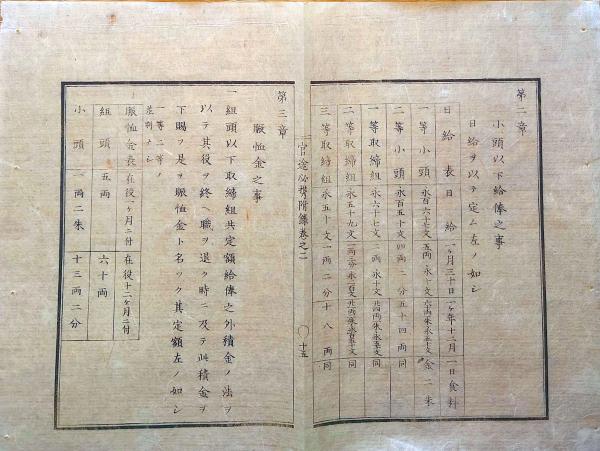 第二章
小頭以下給俸之事
日給ヲ以テ定ム左ノ如シ
日給表 日給 一ヶ月三十日 一ヶ年十二月 一日食料
一等小頭 永百六十七文 五両ト永十文 六十両ト永百五十文 金二朱
二等小頭 永百五十文 四両二分 五十四両 同
一等取締組 永六十七文 二両ト永十文
二等取締組 永五十九文 同
三等取締組 永五十文 一両二分 十八両 同
官途必携附録巻之二
○十五
第三章
賑恤金之事
一組頭以下取締組共定額給俸之外積金ノ法ヲ
以テ其役ヲ終ヘ職ヲ退ク時ニ及テ此積金ヲ
下賜フ是ヲ賑恤金ト名ツク其定額左ノ如シ
一等二等ノ
差別ナシ
賑恤金表 在役一ヶ月ニ付 在役十二ヶ月ニ付
組頭 五両 六十両
小頭 一両二朱 十三両二分